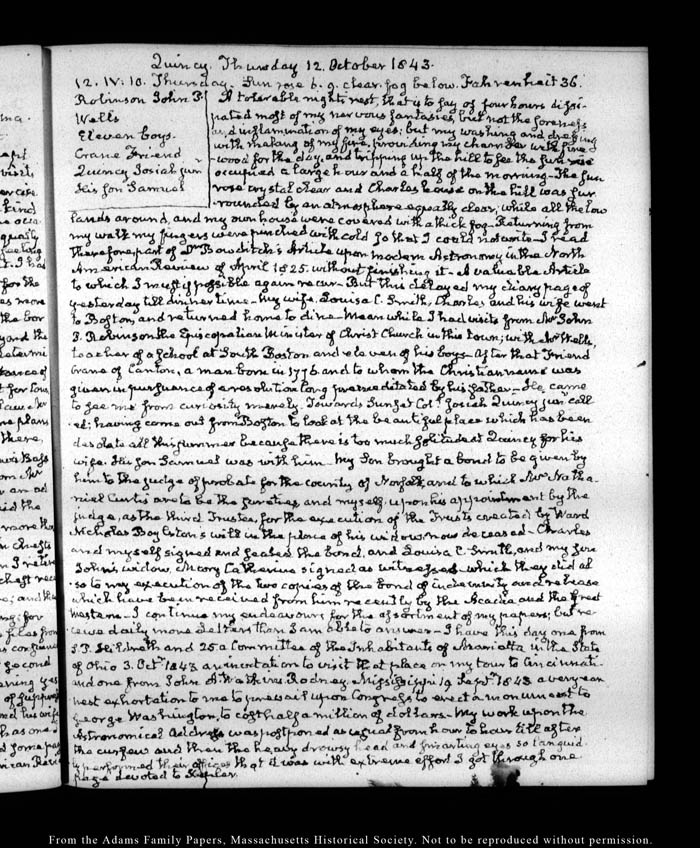 Quincy. Thursday 12. October 1843.
12. IV: 10. Thursday. Sun rose 6. 9. clear. fog below. Fahrenheit 36.
Robinson John P.
Wells
Eleven boys.
Crane Friend
Quincy Josiah jun
His son Samuel
A tolerable night's rest, that is to say of four hours dissi-
pated most of my nervous fantasies, but not the soreness
and inflammation of my eyes; but my washing and dressing
with making of my fire, providing my chamber with fire
wood for the day, and tripping up the hill to see the sun rise
occupied a large hour and a half of the morning— The sun
rose crystal clear and Charles's house on the hill was sur-
rounded by an atmosphere equally clear; while all the low
lands around, and my own house were covered with a thick fog— Returning from
my walk my fingers were pinched with cold so that I could not write— I read
therefore, part of Dr Bowditch's Article upon modern Astronomy in the North
American Review of April 1825. without finishing it— A valuable Article
to which I must if possible again recur— But this delayed my diary page of
yesterday till dinner time— My wife, Louisa C. Smith, Charles and his wife went
to Boston, and returned home to dine— Mean while I had visits from Mr John
P. Robinson the Episcopalian Minister of Christ Church in this town; with Mr Wells,
teacher of a School at South Boston and eleven of his boys— After that Friend
Crane of Canton, a man born in 1776 and to whom the Christian name was
given in pursuance of a resolution long premeditated by his father— He came
to see me from curiosity merely. Towards Sunset Coll Josiah Quincy junr call
ed; having come out from Boston to look at the beautiful place which has been
desolate all this summer because there is too much solitude at Quincy for his
wife. His son Samuel was with him— My Son brought a bond to be given by
him to the judge of probate for the county of Norfolk, and to which Mr Natha-
niel Curtis are to be the sureties, and myself, upon his appointment by the
judge, as the third Trustee, for the execution of the Trusts created by Ward
Nicholas Boylston's will in the place of his widow now deceased— Charles
and myself signed and sealed the bond, and Louisa C. Smith, and my son
John's widow, Mary Catherine signed as witnesses— which they did al
so to my execution of the two copies of the Bond of indemnity and release
which have been received from him recently by the Acadia and the Great
Western— I continue my endeavours for the assortment of my papers; but re-
ceive daily more letters than I am able to answer— I have this day one from
S. P. Hildreth and 25 a Committee of the Inhabitants of Marietta in the State
of Ohio 3. Octr 1843 an invitation to visit that place on my tour to Cincinnati.
and one from John A Watkins Rodney, Mississippi 19 Septr 1843 a very ear-
nest exhortation to me to prevail upon Congress to erect a monument to
George Washington, to cost half a million of dollars— My work upon the
Astronomical Address was postponed as usual from hour to hour till after
the curfew and then the heavy drowsy head and smarting eyes so languid
ly performed their offices that it was with extreme effort I got through one
page devoted to Kepler.
From the Adams Family Papers, Massachusetts Historical Society. Not to be reproduced without permission.